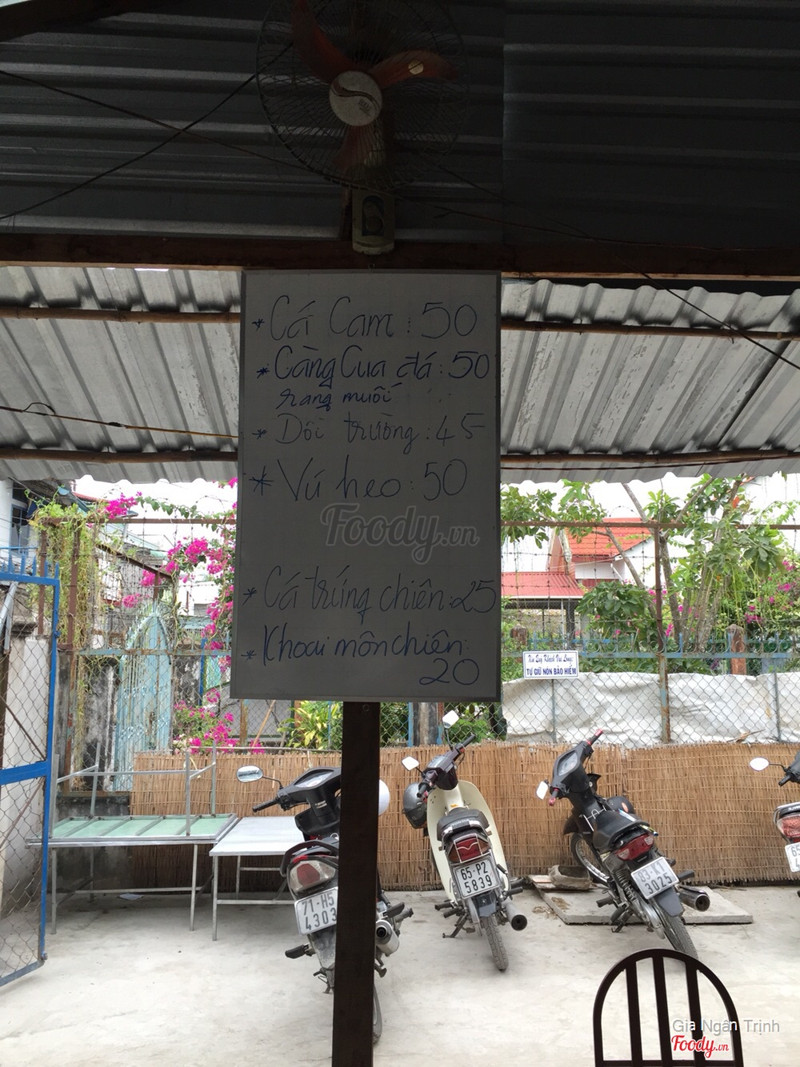 * Cá Cam : 50
* Càng Cua đá : 50
rang muối
* Dồi trường : 45
* Vú heo : 50
Foody.vn
* Cá trứng chiên : 25
* Khoai môn chiên :
20
TỰ GIỮ NÓN BẢO HIỂM
65-P2
5839
71-H5
4303
3025
Gia Ngân Trịnh
Foody.vn